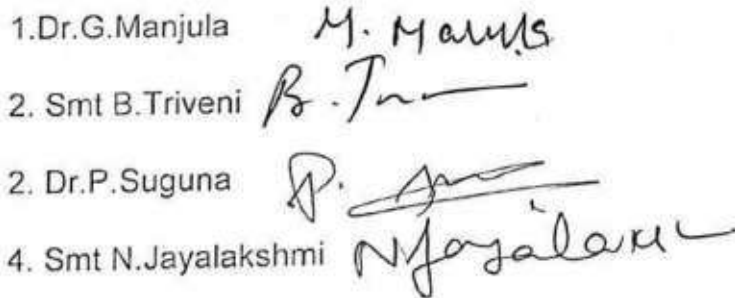 1.Dr.G.Manjula M. Manjula
2. Smt B.Triveni B.
2. Dr.P.Suguna P.
4. Smt N.Jayalakshmi N Jayalaxm